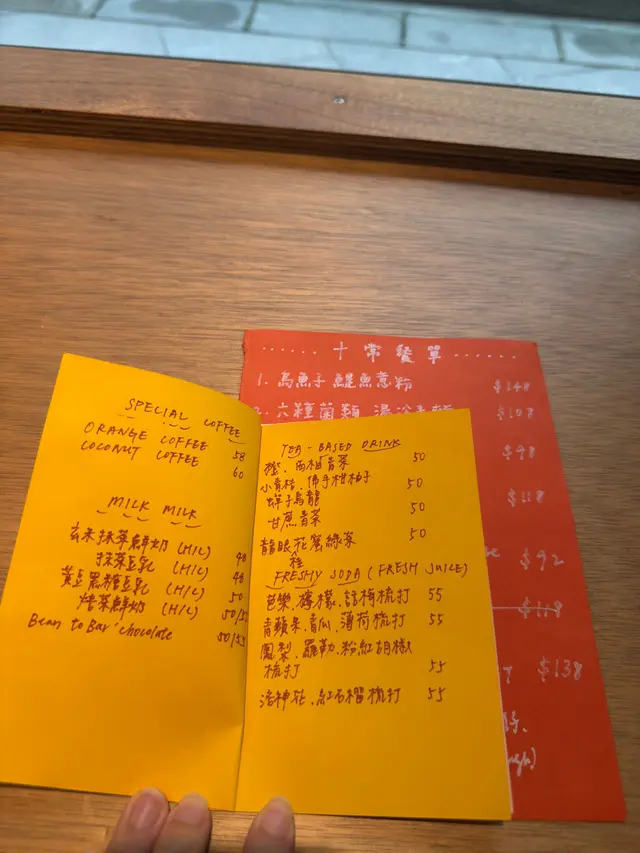 SPECIAL COFFEE
ORANGE COFFEE 58
COCONUT COFFEE 60
MILK MILK
玄米抹茶鮮奶 (H/C) 48
抹茶豆乳 (H/C) 48
黃豆黑糖豆乳 (H/C) 50
焙茶鮮奶 (H/C) 50/55
Bean to Bar chocolate 50/55
TEA-BASED DRINK
橙、西柑青茶 50
小青桔、佛手柑柚子
蟬子烏龍 50
甘蔗青茶 50
龍眼花蜜綠茶 50
桂
FRESHY SODA (FRESH JUICE)
芭樂、檸檬、話梅梳打 55
青蘋果、青瓜、薄荷梳打 55
鳳梨、羅勒、粉紅胡椒
梳打 55
洛神花、紅石榴梳打 55
...... 十常餐單 ......
1. 烏魚子鯷魚意粉 $148
2. 六種菌類 $108
$98
$118
$92
$118
$138